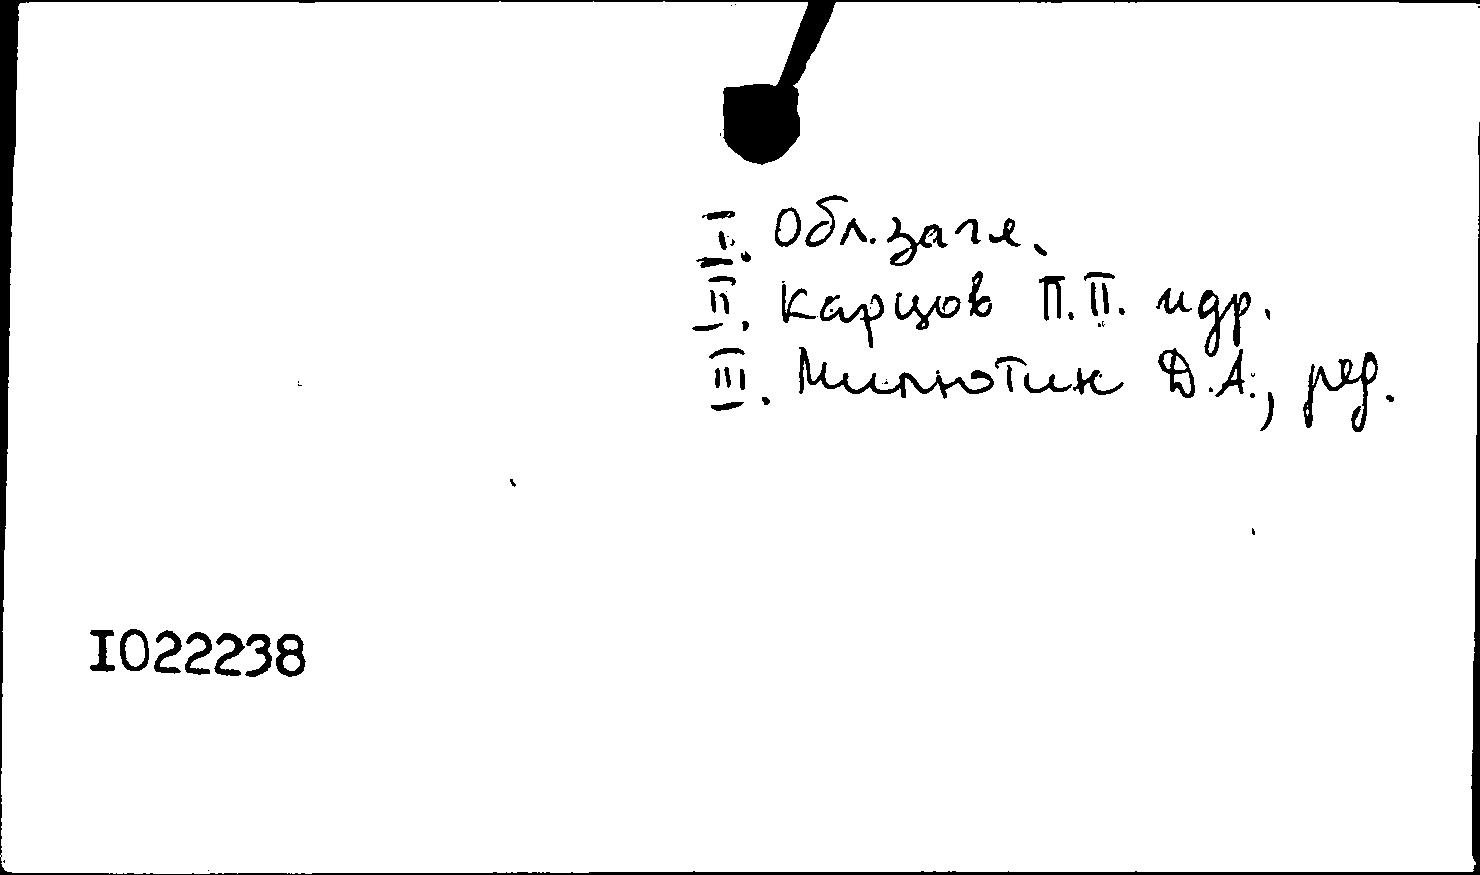 I. Обл. загл.
II. Карцов П.П. и др.
III. Милютин Д.А., ред.
I022238